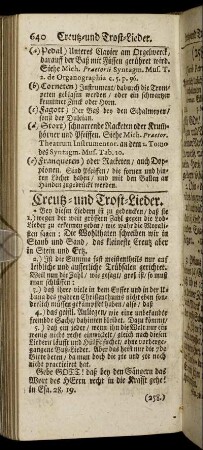 640 Creutz-und Trost-Lieder.
(a) Pedal) Unteres Clavier am Orgelwerck,
darauf der Baß mit Füssen gerühret wird.
Siehe Mich. Prætorii Syntagm. Mus. T.
2. de Organographia c. 5. p. 96.
(b) Corneten) Instrument/ dadurch die Trom-
peten geblasen werden / oder ein schwartzer
krummer Zinck oder Horn.
(c) Fagott) Der Baß bey den Schalmeyen/
sonst der
(d) Stort) schnarrende Racketen oder Krum-
hörner und Pfeiffen. Siehe Mich. Praetor.
Theatrum Instrumentor. an dem 2. Tomo
des Syntagm. Mus. Tab. 10.
(e) oder Racketen/ auch Dop-
pionen. Sind Pfeiffen/ die fornen und hin-
ten Löcher haben/ und mit den Ballen an
Händen zugedrückt werden.
Creutz-und Trost-Lieder.
Bey diesen Liedern ist zu gedencken/ daß sie
1.) wegen der weit grössern Zahl gegen die Lob-
Lieder zu erkennen geben/ wie wahr die
ten sagen: Der Wohlthaten schreiben wir in
Staub und Sand, das kleineste Creutz aber
in Stein und Ertz.
2.) Ist die Summa fast meistentheils nur auf
leibliche und äusserliche Trübsalen gerichtet.
Weil nun die Zahl/ wie gesagt/ groß ist/ so muß
man schliessen:
3.) daß ihre viele in dem Eyffer und in der
des wahren Christenthums nicht eben son-
derlich müssen gekämpfet haben/ also/ daß
4.) das geistl. Anliegen/ wie eine unbekandte
fremde Sache/ dahinten bleibet. Dazu kömmt/
5.) daß ein jeder/ wenn ihn die Welt nur ein
wenig nicht recht anwincket/ gleich nach diesen
Liedern läufft und Hülffe suchet/ ohne vorher-
gegangene Buß-Lieder. Aber das heist nur die
Worte beten/ da man doch die 5te und 6te noch
nicht practiciret hat.
Gebe GOTT! daß bey den Sängern das
Wort des HErrn recht in die Krafft gehe!
in Esa. 28. 19.
(258.)